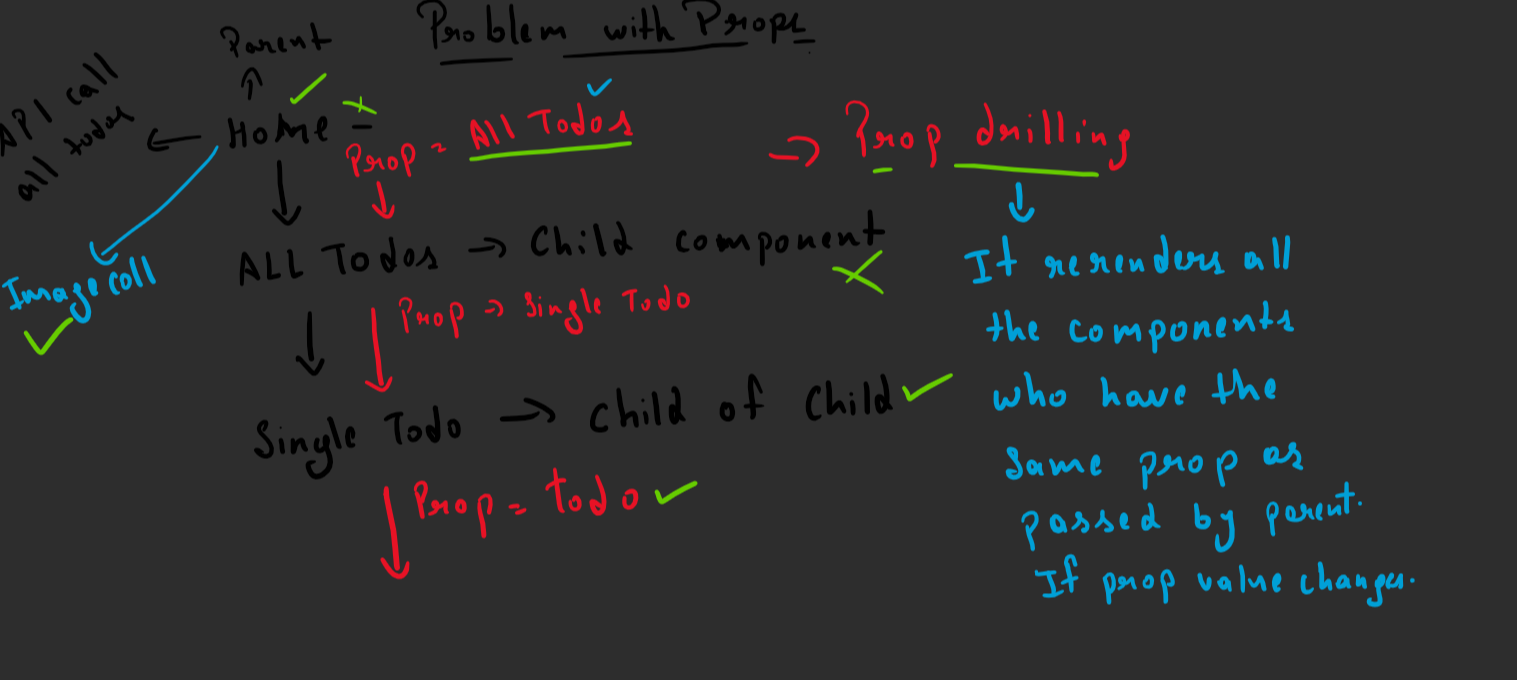 Problem with Props
Parent
API call
all todos
Home
Prop = All Todos
→ Prop drilling
ALL Todos → Child component
Image call
Prop → Single Todo
Single Todo → child of child
Prop = todo
It rerenders all
the components
who have the
same prop as
passed by parent.
If prop value changes.